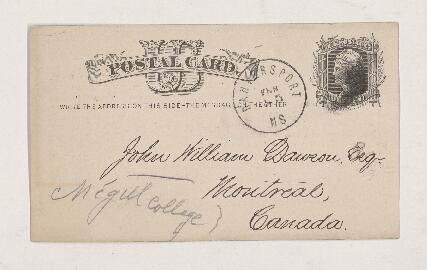 POSTAL CARD.
WRITE THE ADDRESS ON THIS SIDE-THE MESSAGE ON THE OTHER
John William Dawson, Esq.
Montreal,
McGill
College
Canada.